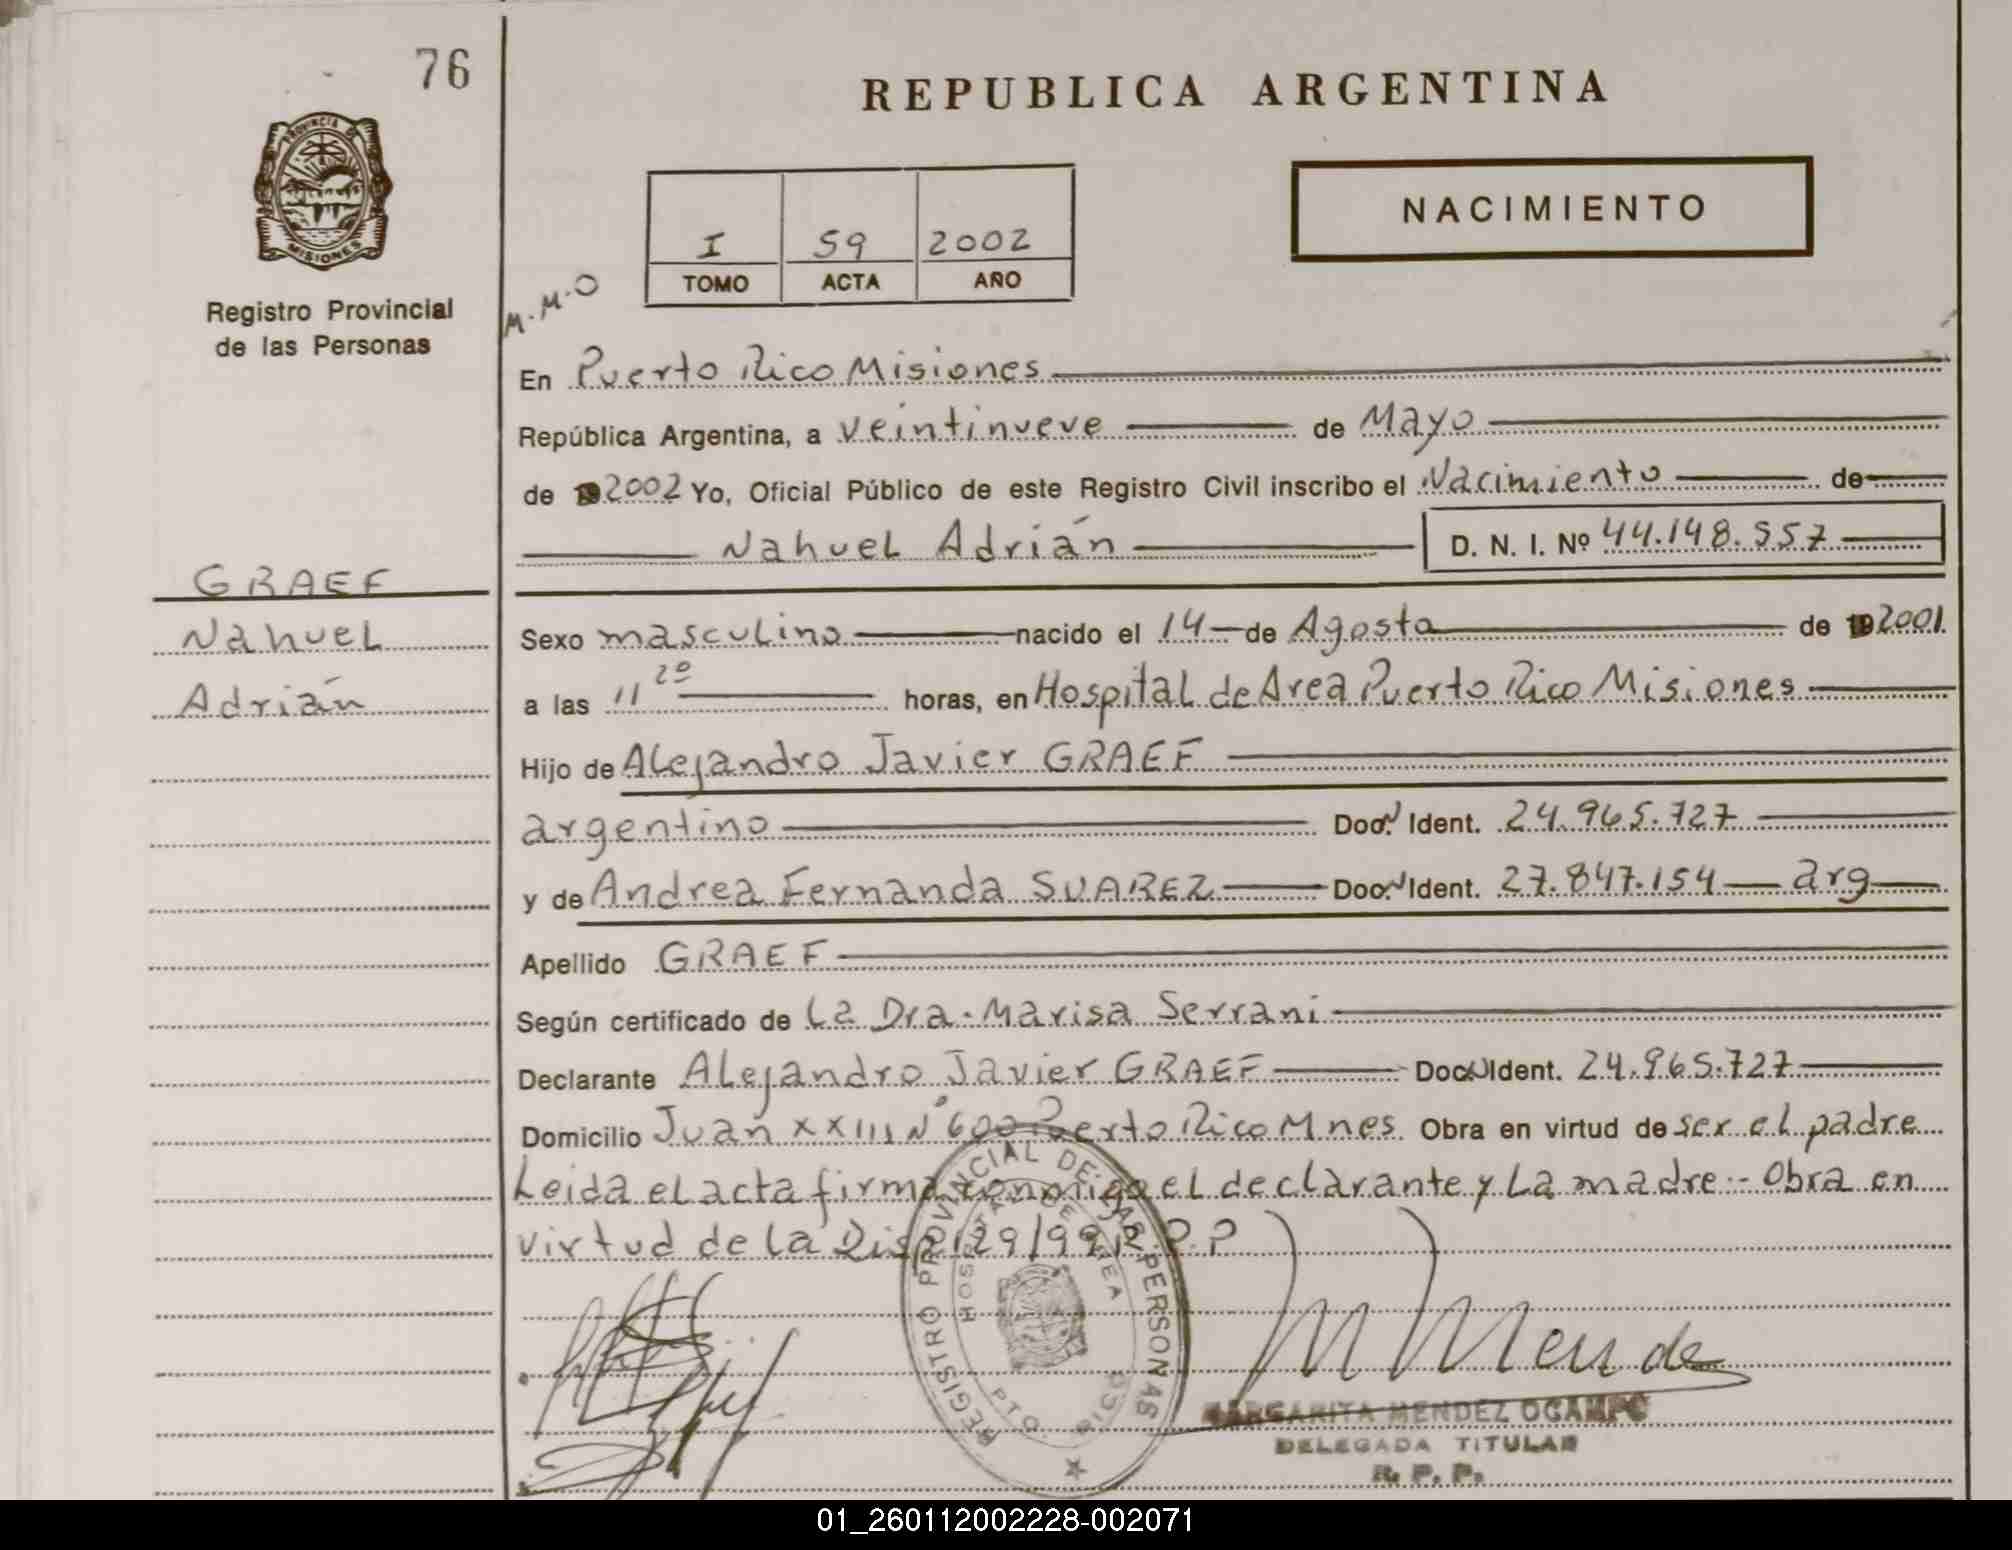 76
REPUBLICA ARGENTINA
PROVINCIA DE
MISIONES
Registro Provincial
de las Personas
NACIMIENTO
I 59 2002
TOMO ACTA AÑO
M.M.O
En Puerto Rico Misiones
República Argentina, a veintinueve de Mayo
de 2002 Yo, Oficial Público de este Registro Civil inscribo el Nacimiento de
Nahuel Adrián D. N. I. Nº 44.148.557
GRAEF
Nahuel
Adrián
Sexo masculino nacido el 14 de Agosto de 2001
a las 11 20 horas, en Hospital de Area Puerto Rico Misiones
Hijo de Alejandro Javier GRAEF
argentino Doc. Ident. 24.965.727
y de Andrea Fernanda SUAREZ Doc. Ident. 27.847.154 arg
Apellido GRAEF
Según certificado de La Dra. Marisa Serrani
Declarante Alejandro Javier GRAEF Doc. Ident. 24.965.727
Domicilio Juan XXIII Nº 600 Puerto Rico Mnes. Obra en virtud de ser el padre
Leida el acta firma conmigo el declarante y La madre.- Obra en
virtud de la Disp 129/99 R.P.P
REGISTRO PROVINCIAL DE LAS PERSONAS
HOSPITAL DE AREA
PTO. RICO
M Mende
MARGARITA MENDEZ OCAMPO
DELEGADA TITULAR
R. P. P.
01_260112002228-002071